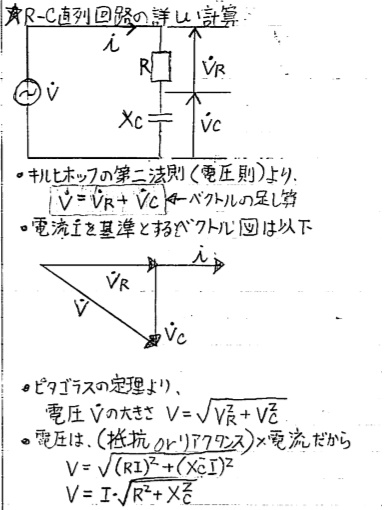 ★R-C直列回路の詳しい計算
i
R
V̇R
V̇
XC
V̇C
・キルヒホッフの第二法則(電圧則)より、
V̇ = V̇R + V̇C ←ベクトルの足し算
・電流iを基準とするベクトル図は以下
i
V̇R
V̇
V̇C
・ピタゴラスの定理より、
電圧V̇の大きさ V=√VR²+VC²
・電圧は、(抵抗orリアクタンス)×電流だから
V=√(RI)²+(XCI)²
V=I・√R²+XC²